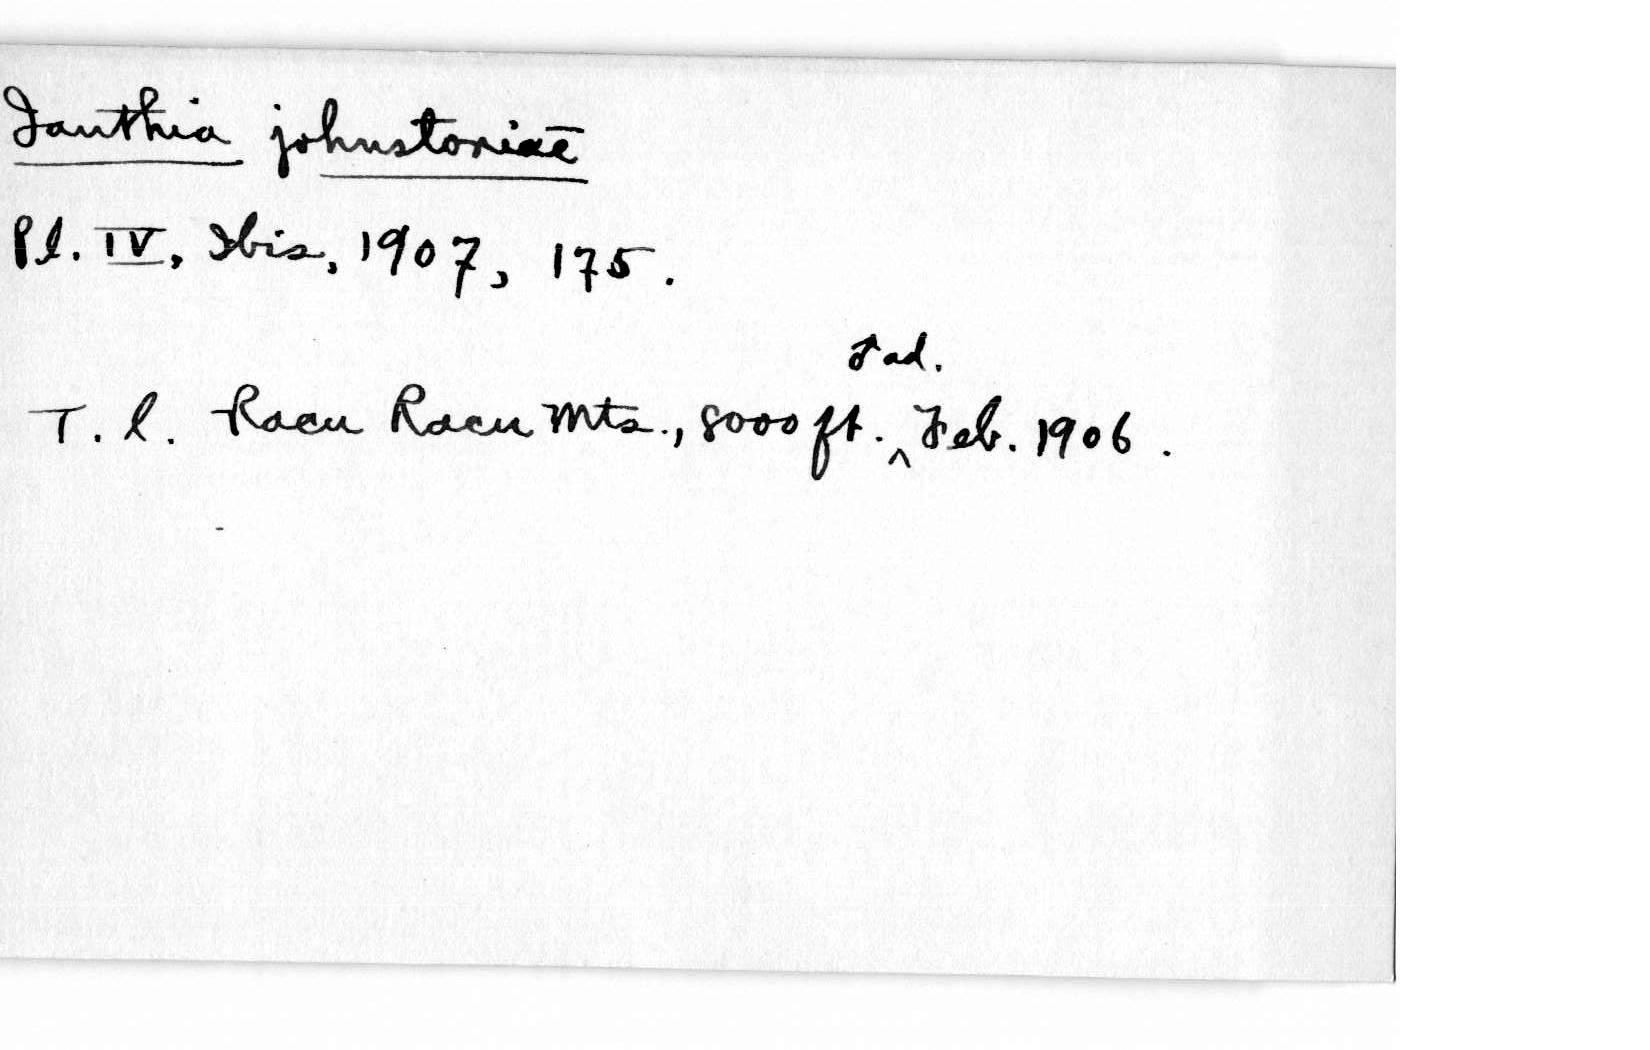 Ianthia johnstoniae
Pl. IV, Ibis, 1907, 175.
♂ ad.
T. l. Racu Racu Mts., 8000 ft. ^ Feb. 1906.